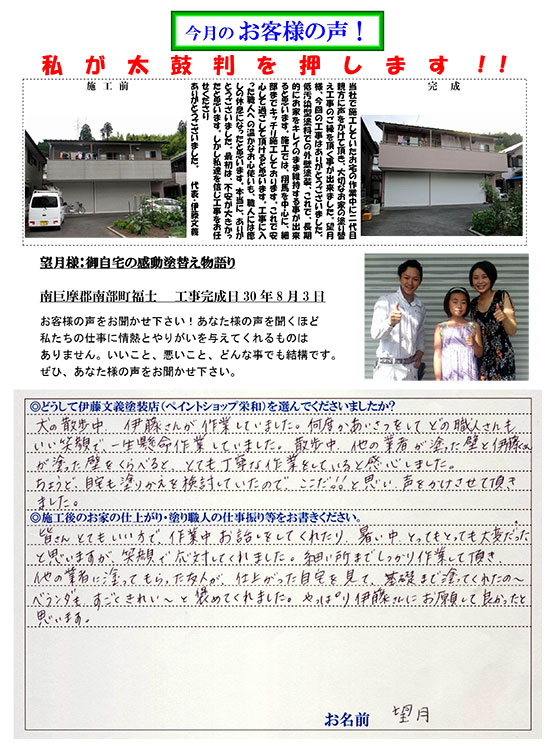 今月の お客様の声！
私が太鼓判を押します!!
施工前
完成
当社で施工していたお宅の作業中に二代目
親方に声をかけて頂き、大切なお家の塗り替
え工事のご縁を頂く事が出来ました。望月
様、今回の工事はありがとうございました。
低汚染型塗料での外壁塗装、これで、長期
的にお家をキレイのまま維持する事が出来
ると思います。施工では、翔馬を中心に、細
部までキッチリ施工しております。これで安
心して過ごして頂けると思います。工事に入
った職人への温かなお心使いも、職人には癒
しの休息になったと思います。本当に、ありが
とうございました。最初は、不安が大きかっ
たと思います。しかし私達を信じ工事をお任
せくださり
ありがとうございました。 代表・伊藤文義
望月様：御自宅の感動塗替え物語り
南巨摩郡南部町福士 工事完成日30年8月3日
お客様の声をお聞かせ下さい！あなた様の声を聞くほど
私たちの仕事に情熱とやりがいを与えてくれるものは
ありません。いいこと、悪いこと、どんな事でも結構です。
ぜひ、あなた様の声をお聞かせ下さい。
◎どうして伊藤文義塗装店（ペイントショップ栄和）を選んでくださいましたか？
犬の散歩中、伊藤さんが作業していました。何度かあいさつをして どの職人さんも
いい笑顔で一生懸命作業していました。散歩中、他の業者が塗った壁と伊藤さん
が塗った壁をくらべると、とても丁寧な作業をしていると感心しました。
ちょうど、自宅も塗りかえを検討していたので、ここだ!!と思い、声をかけさせて頂き
ました。
◎施工後のお家の仕上がり・塗り職人の仕事振り等をお書きください。
皆さん とてもいい方で、作業中 お話しをしてくれたり、暑い中、とってもとっても大変だった
と思いますが、笑顔で応対してくれました。細い所までしっかり作業して頂き、
他の業者に塗ってもらった友人が、仕上がった自宅を見て、基礎まで塗ってくれたの〜
ベランダも、すごくきれい〜と褒めてくれました。やっぱり伊藤さんにお願して良かったと
思います。
お名前 望月